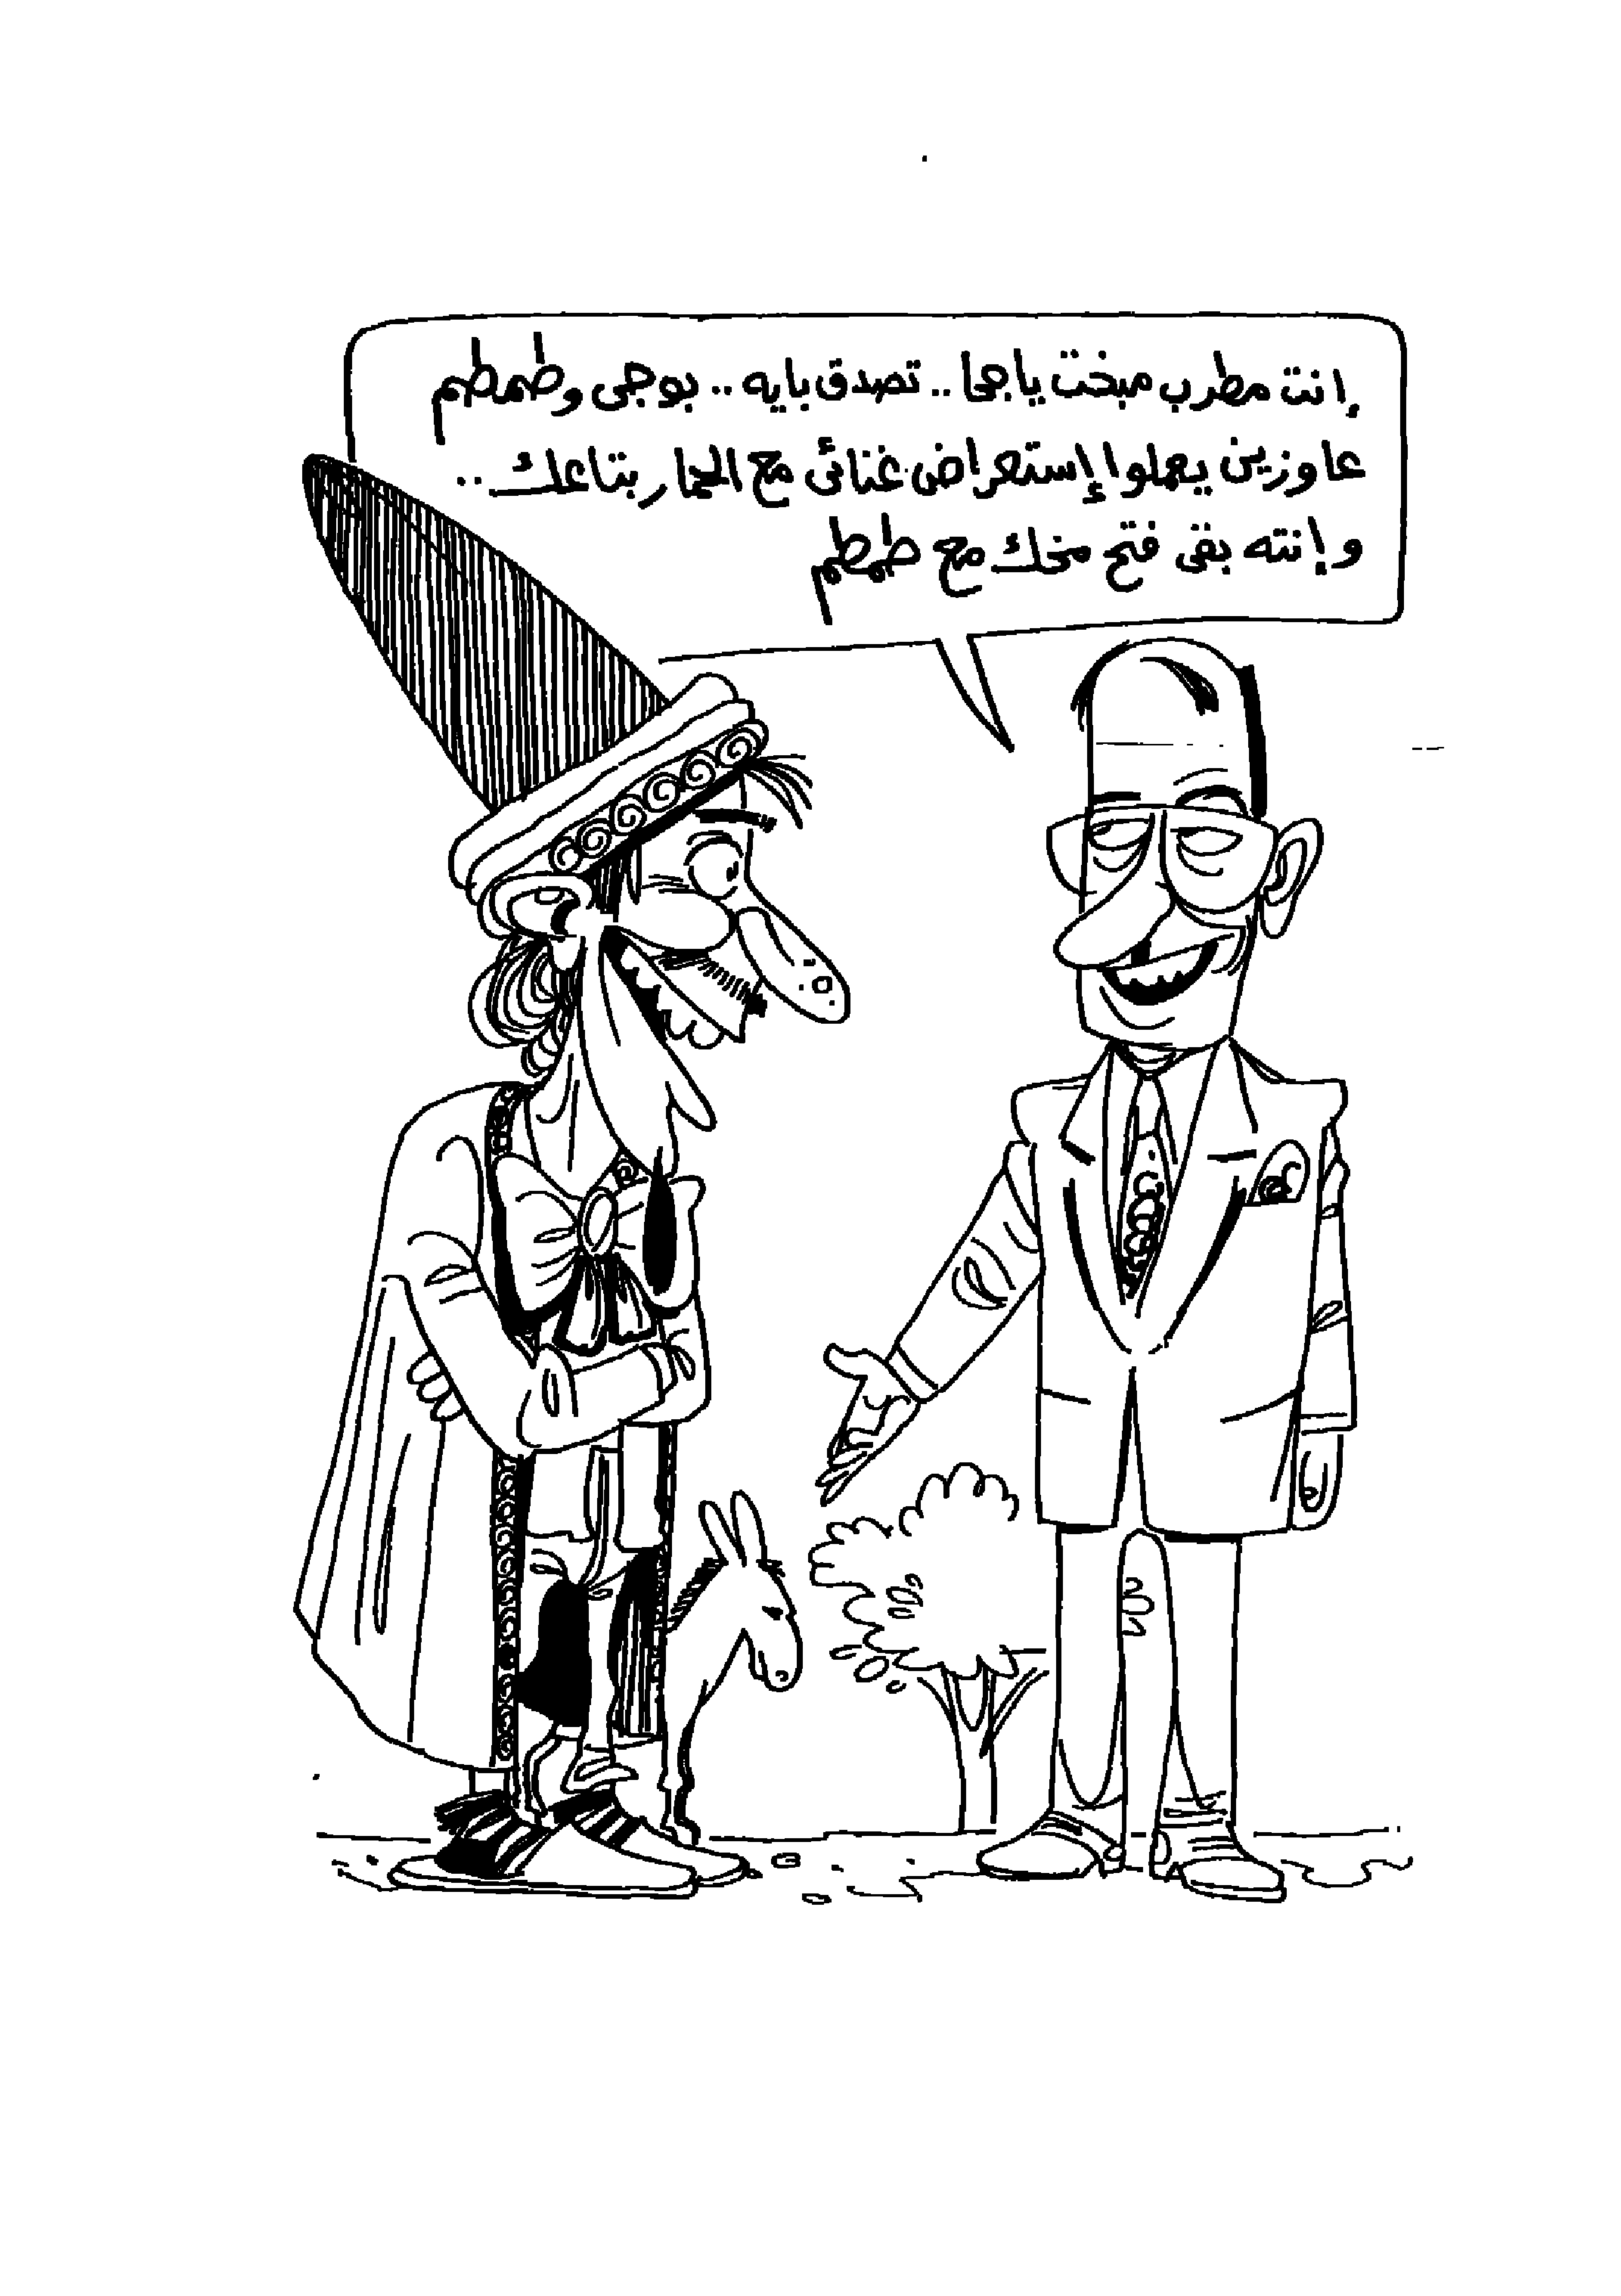 إنت مطرب مبخت ياجحا .. تصدق بايه .. بوجى وطمطم
عاوزين يعملوا إستعراض غنائى مع الحمار بتاعك ..
وإنته بقى فتح مخك مع طمطم